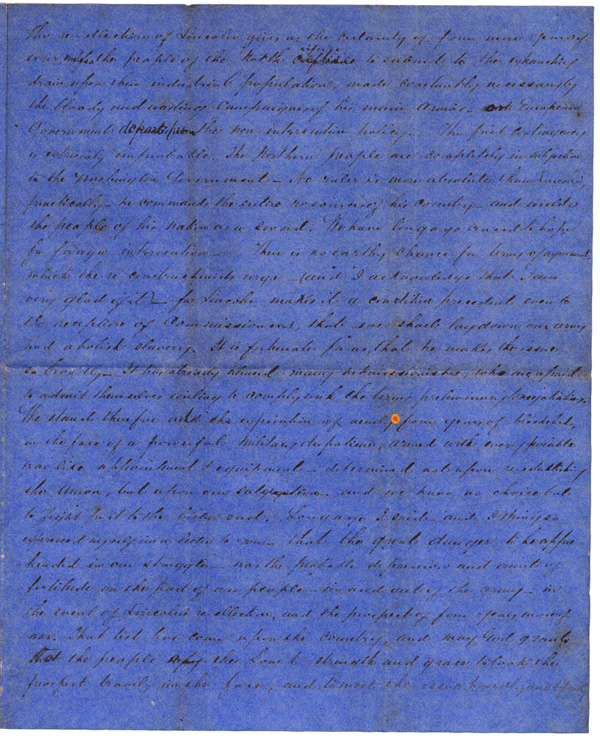 The re-election of Lincoln gives us the certainty of four more years of
war, unless the people of the North refuse to submit to the exhausting
drain upon their industrial population, made constantly necessary by
the bloody and wasting Campaigns of his main armies. or European
Governments depart from the non intervention policy. The first contingency
is extremely improbable. The Northern people are completely in subjection
to the Washington Government — No ruler is more absolute than Lincoln,
practically — he commands the entire resources of his country — and wields
the people of his nation as a sword. We have long ago ceased to hope
for foreign intervention — There is no earthly chance for terms of agreement,
which the re constructionists urge — (and I acknowledge that I am
very glad of it) — for Lincoln makes it a condition precedent even to
the reception of Commissioners, that we shall lay down our arms
and abolish slavery. It is fortunate for us, that he makes the issue
so broadly — It has already silenced many submissionists, who are afraid
to admit themselves willing to comply with the terms preliminary to negotiation.
We stand therefore with the expiration of nearly four years of bloodshed,
in the face of a powerful military despotism, armed with every possible
warlike appointment & equipment — determined not upon re-establishing
the Union, but upon our subjugation — and we have no choice but
to fight it out to the bitter end. Long ago I said, and I think so
expressed myself in a letter to you — that the great danger to be appre
hended in our struggle — was the probable depression and want of
fortitude on the part of our people — in and out of the army — in
the event of Lincoln's re-election, and the prospect of four years more of
war. That test has come upon the country, and may God grant
that the people of the South strength and grace to look the
prospect bravely in the face, and to meet the issue